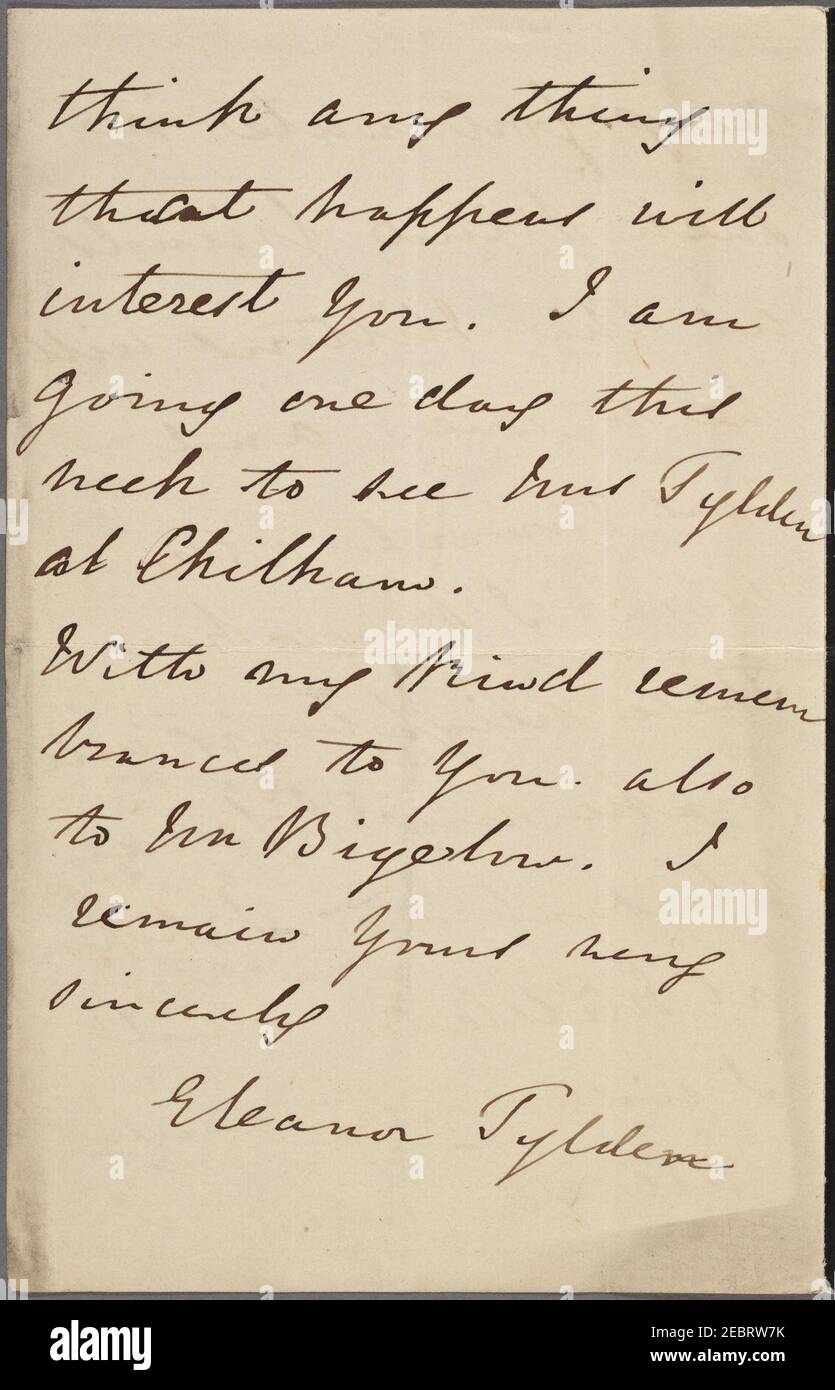 think any thing
that happens will
interest you. I am
going one day this
week to see Mrs Tylden
at Chilham.
With my kind remem
brances to you. also
to Mr Bigelow. I
remain yours very
sincerely
Eleanor Tylden
alamy
Image ID: 2EBRW7K
www.alamy.com